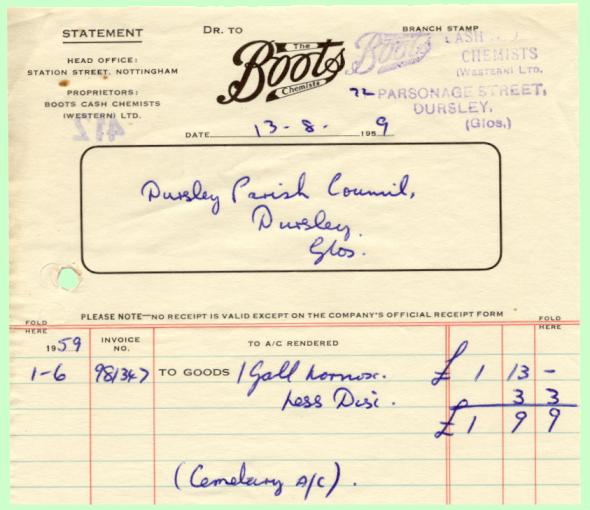 STATEMENT
DR. TO
BRANCH STAMP
HEAD OFFICE:
STATION STREET. NOTTINGHAM
PROPRIETORS:
BOOTS CASH CHEMISTS
(WESTERN) LTD.
412
The
Boots
Chemists
Boots
CHEMISTS
(WESTERN) LTD.
72 PARSONAGE STREET,
DURSLEY,
(Glos.)
DATE 13-8- 1959
Dursley Parish Council,
Dursley.
Glos.
PLEASE NOTE—NO RECEIPT IS VALID EXCEPT ON THE COMPANY'S OFFICIAL RECEIPT FORM
FOLD HERE
FOLD HERE
1959 INVOICE NO. TO A/C RENDERED
1-6 981347 TO GOODS 1 Gall £ 1 13 -
Less Disc. 3 3
£1 9 9
(Cemetary A/C).